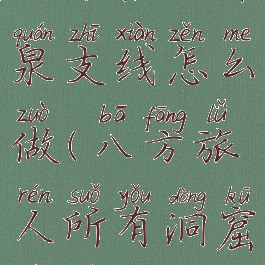 quán zhī xiàn zěn me
泉支线怎么
zuò bā fāng lǚ
做(八方旅
rén suǒ yǒu dòng kū
人所有洞窟